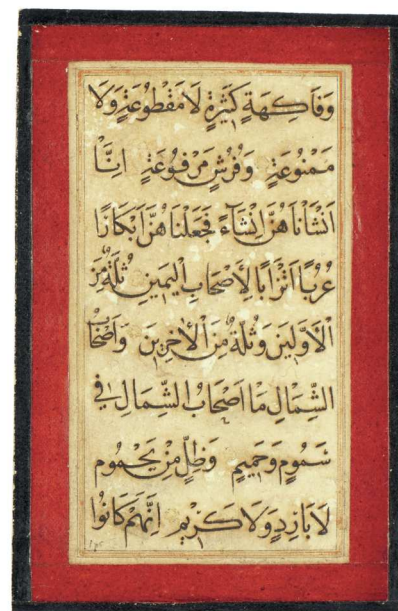 وَفَاكِهَةٍ كَثِيرَةٍ لَا مَقْطُوعَةٍ وَلَا
مَمْنُوعَةٍ وَفُرُشٍ مَرْفُوعَةٍ اِنَّا
اَنْشَأْنَاهُنَّ اِنْشَآءً فَجَعَلْنَاهُنَّ اَبْكَارًا
عُرُبًا اَتْرَابًا لِأَصْحَابِ الْيَمِينِ ثُلَّةٌ مِنَ
الْاَوَّلِينَ وَثُلَّةٌ مِنَ الْاٰخِرِينَ وَاَصْحَابُ
الشِّمَالِ مَا اَصْحَابُ الشِّمَالِ فِي
سَمُومٍ وَحَمِيمٍ وَظِلٍّ مِنْ يَحْمُومٍ
لَا بَارِدٍ وَلَا كَرِيمٍ اِنَّهُمْ كَانُوا